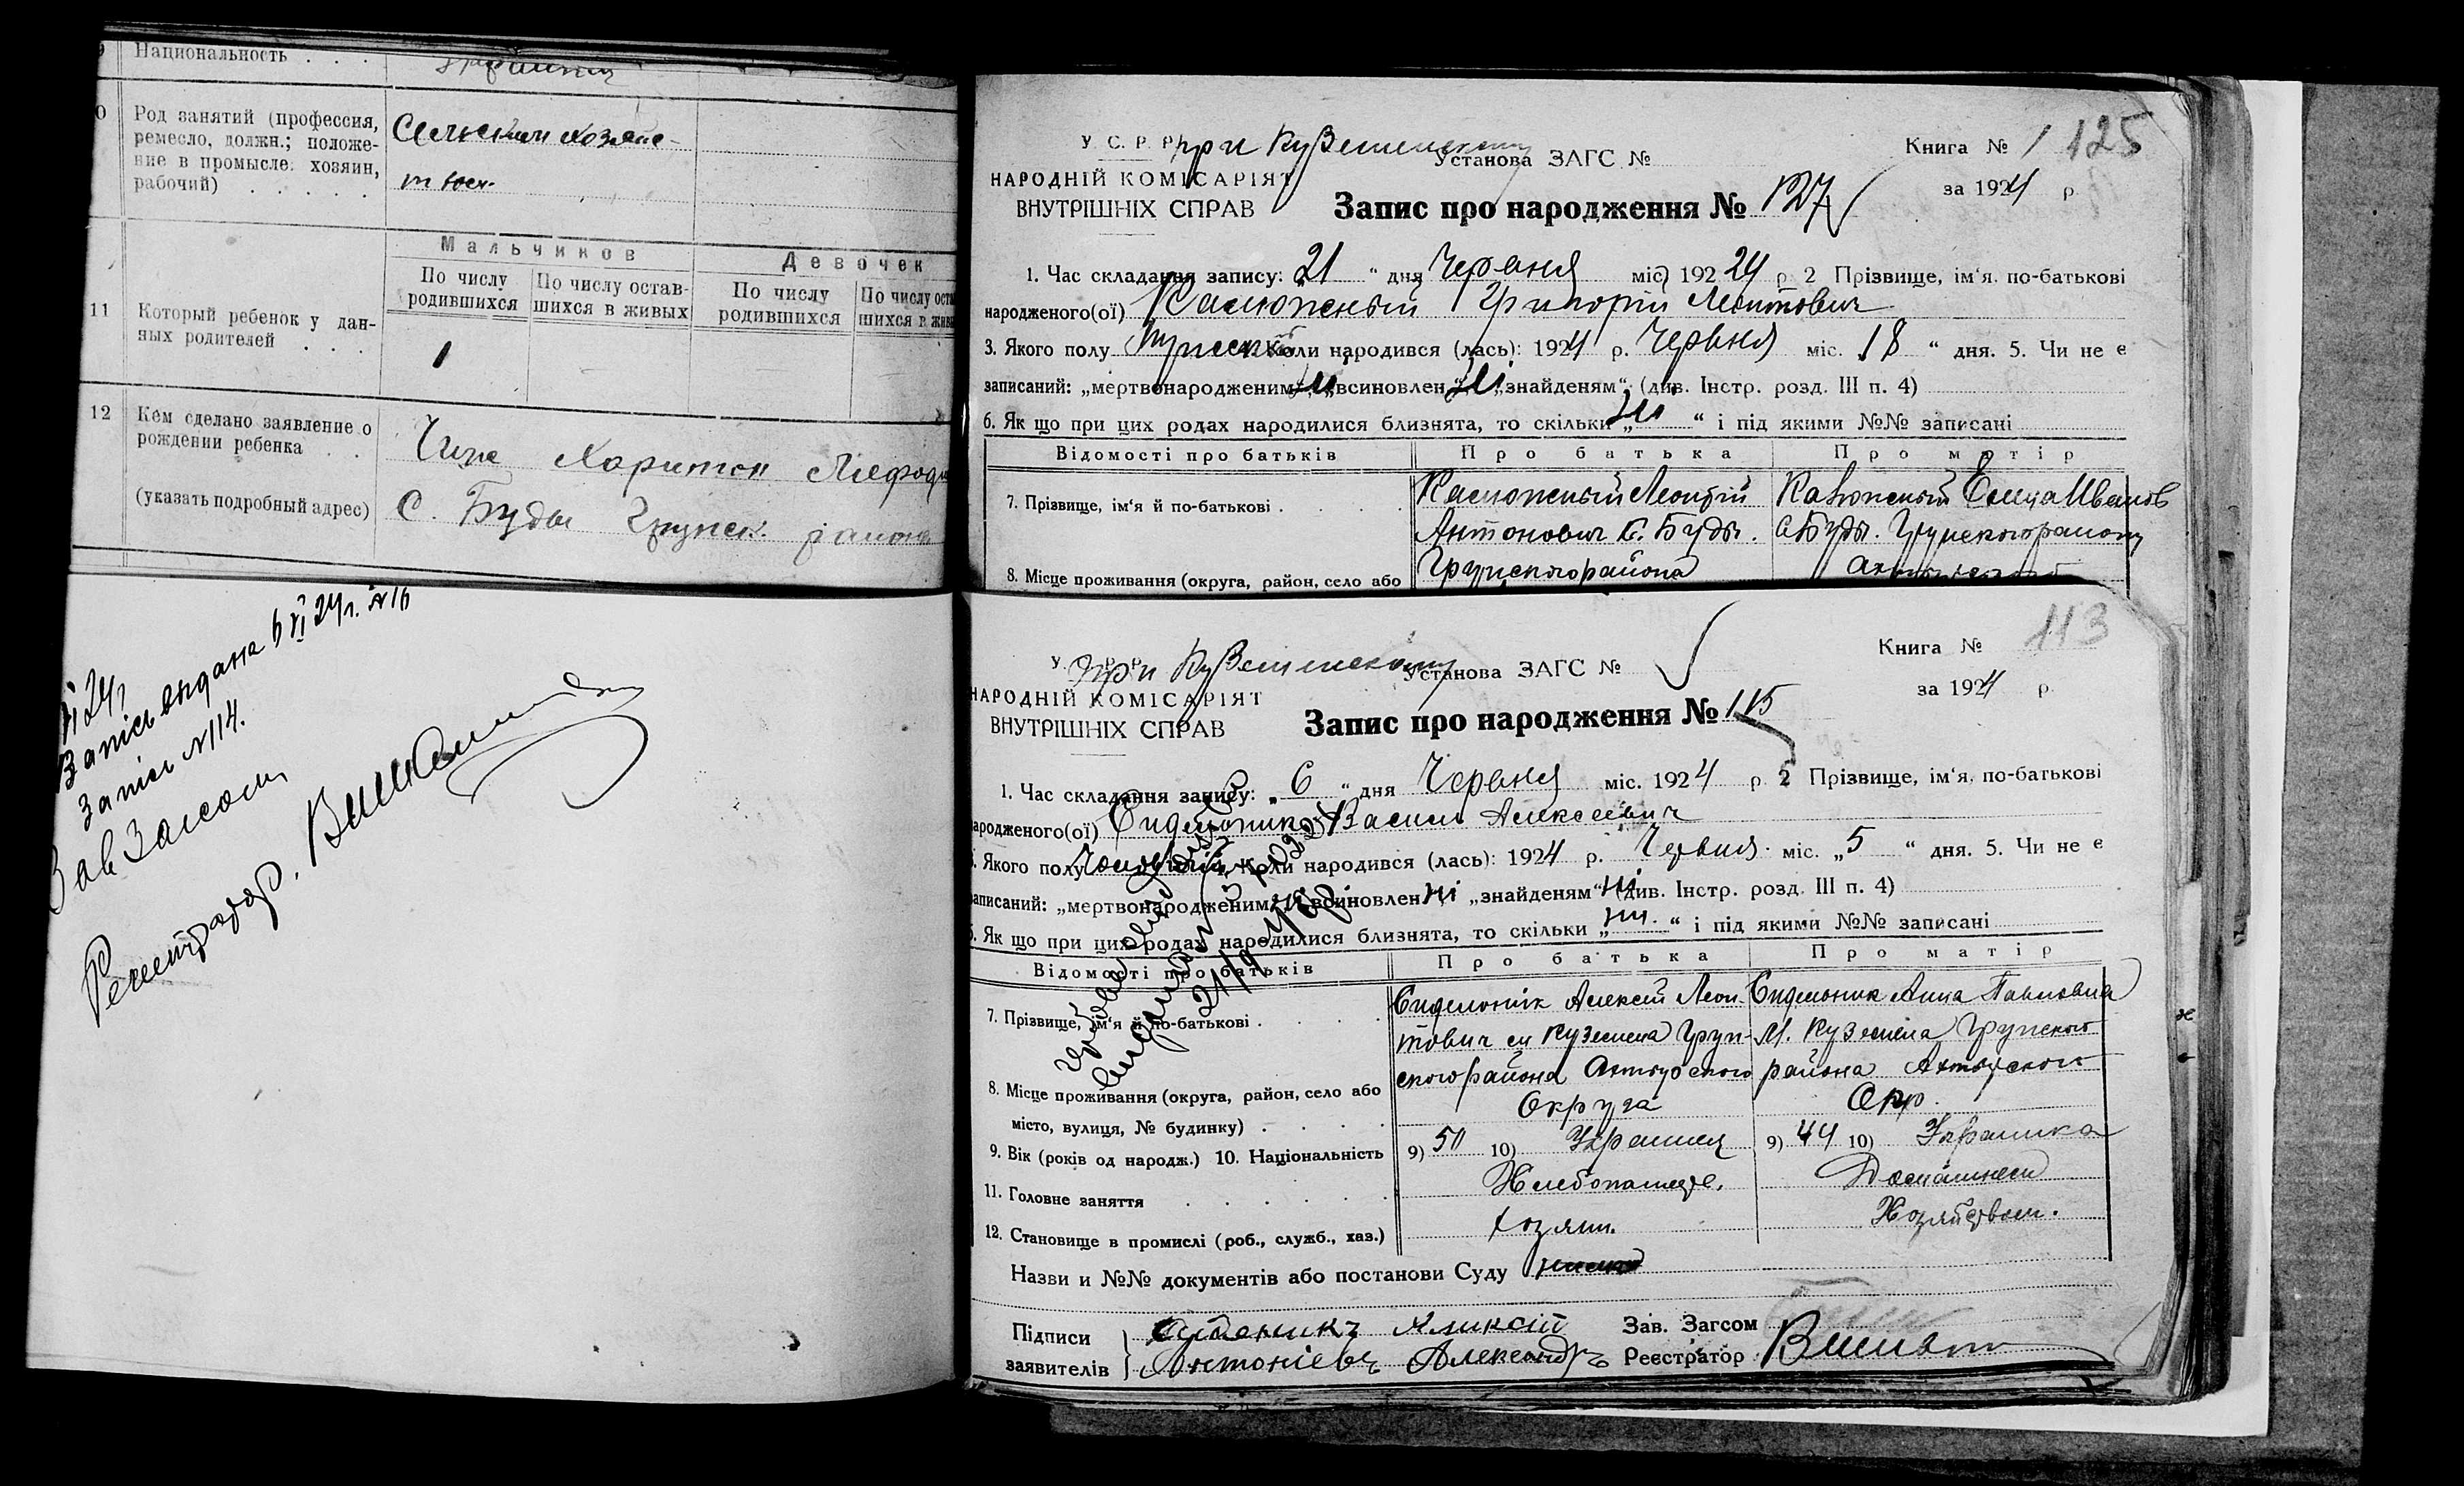 Национальность . . .
10 Род занятий (профессия,
ремесло, должн.; положе-
ние в промысле: хозяин,
рабочий) . . . . .
Сельским хозяйс-
твом
Мальчиков
Девочек
По числу
родившихся
По числу остав-
шихся в живых
По числу
родившихся
По числу оста
шихся в жив
11 Который ребенок у дан-
ных родителей . . .
1
12 Кем сделано заявление о
рождении ребенка . .
(указать подробный адрес)
Харитон Мефоди
С. Буды Грунск. района
VI 24 г
Запись выдана 6 VI 24 г. №16
Запись №114.
Зав Загсом
Регистратор.
125
У. С. Р. Р.
НАРОДНІЙ КОМІСАРІЯТ
ВНУТРІШНІХ СПРАВ
при Куземенскому
Установа ЗАГС №
Книга № 1
за 1924 р.
Запис про народження № 127
1. Час складання запису: 21 “ дня Червня міс. 192 24 р. 2 Прізвище, ім‘я, по-батькові
народженого(ої) Калюжный Григорий Леонтович
3. Якого полу Коли народився (лась): 1924 р. Червня міс. 18 “ дня. 5. Чи не є
записаний: „мертвонародженим“, ні „всиновлен“, ні „знайденям“ (див. Інстр. розд. III п. 4)
6. Як що при цих родах народилися близнята, то скільки „ ні “ і під якими №№ записані
Відомості про батьків Про батька Про матір
7. Прізвище, ім‘я й по-батькові . . . .
8. Місце проживання (округа, район, село або
Калюжный Леонтий
Антонович С. Буды.
Грунского района
Калюжный Иванов
С Буды. Грунского району
113
У. С. Р. Р.
НАРОДНІЙ КОМІСАРІЯТ
ВНУТРІШНІХ СПРАВ
при Куземенскому
Установа ЗАГС №
Книга №
за 1924 р.
Запис про народження № 115
1. Час складання запису: „ 6 “ дня Червня міс. 1924 р. 2 Прізвище, ім‘я, по-батькові
народженого(ої) Сиделоник Василь Алексеевич
3. Якого полу Коли народився (лась): 1924 р. Червня міс. „5 “ дня. 5. Чи не є
записаний: „мертвонародженим“, „всиновлен“ ні „знайденям“ ні (див. Інстр. розд. III п. 4)
6. Як що при цих родах народилися близнята, то скільки „ ни. “ і під якими №№ записані
Відомості про батьків Про батька Про матір
7. Прізвище, ім‘я й по-батькові . . . .
8. Місце проживання (округа, район, село або
місто, вулиця, № будинку) . . . .
9. Вік (років од народж.) 10. Національність
11. Головне заняття . . . . . .
12. Становище в промислі (роб., служб., хаз.)
Сиделоник Алексей Леон-
тович м Куземена Грун-
ского района Ахтырского
Округа
9) 50 10) Украинец
Хлебопашес.
хозяин.
Сиделоник Анна Павловна
М. Куземена Грунского
района Ахтырского
Окр.
9) 44 10) Украинка
Домашнем
Хозяйством.
Назви и №№ документів або постанови Суду
Підписи
заявителів
Аликсій
Антоніевъ Александръ
Зав. Загсом
Реєстратор